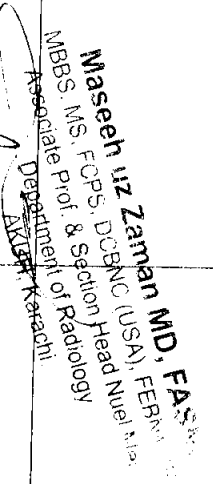 Maseeh uz Zaman MD, FAS
MBBS, MS, FCPS, DCBNC (USA), FERM
Associate Prof. & Section Head Nuel
Department of Radiology
AKUH, Karachi.